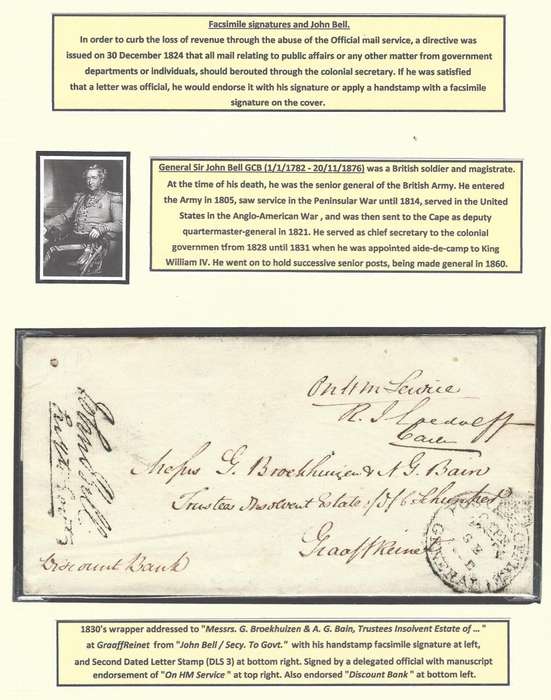 Facsimile signatures and John Bell.
In order to curb the loss of revenue through the abuse of the Official mail service, a directive was
issued on 30 December 1824 that all mail relating to public affairs or any other matter from government
departments or individuals, should berouted through the colonial secretary. If he was satisfied
that a letter was official, he would endorse it with his signature or apply a handstamp with a facsimile
signature on the cover.
General Sir John Bell GCB (1/1/1782 - 20/11/1876) was a British soldier and magistrate.
At the time of his death, he was the senior general of the British Army. He entered
the Army in 1805, saw service in the Peninsular War until 1814, served in the United
States in the Anglo-American War , and was then sent to the Cape as deputy
quartermaster-general in 1821. He served as chief secretary to the colonial
governmen tfrom 1828 until 1831 when he was appointed aide-de-camp to King
William IV. He went on to hold successive senior posts, being made general in 1860.
On H M Service
John Bell
Messrs G. Broekhuizen & A G. Bain
Trustees Insolvent Estate
Graaff Reinet
Discount Bank
GENERAL
1830's wrapper addressed to "Messrs. G. Broekhuizen & A. G. Bain, Trustees Insolvent Estate of ... "
at GraaffReinet from "John Bell / Secy. To Govt." with his handstamp facsimile signature at left,
and Second Dated Letter Stamp (DLS 3) at bottom right. Signed by a delegated official with manuscript
endorsement of "On HM Service " at top right. Also endorsed "Discount Bank " at bottom left.